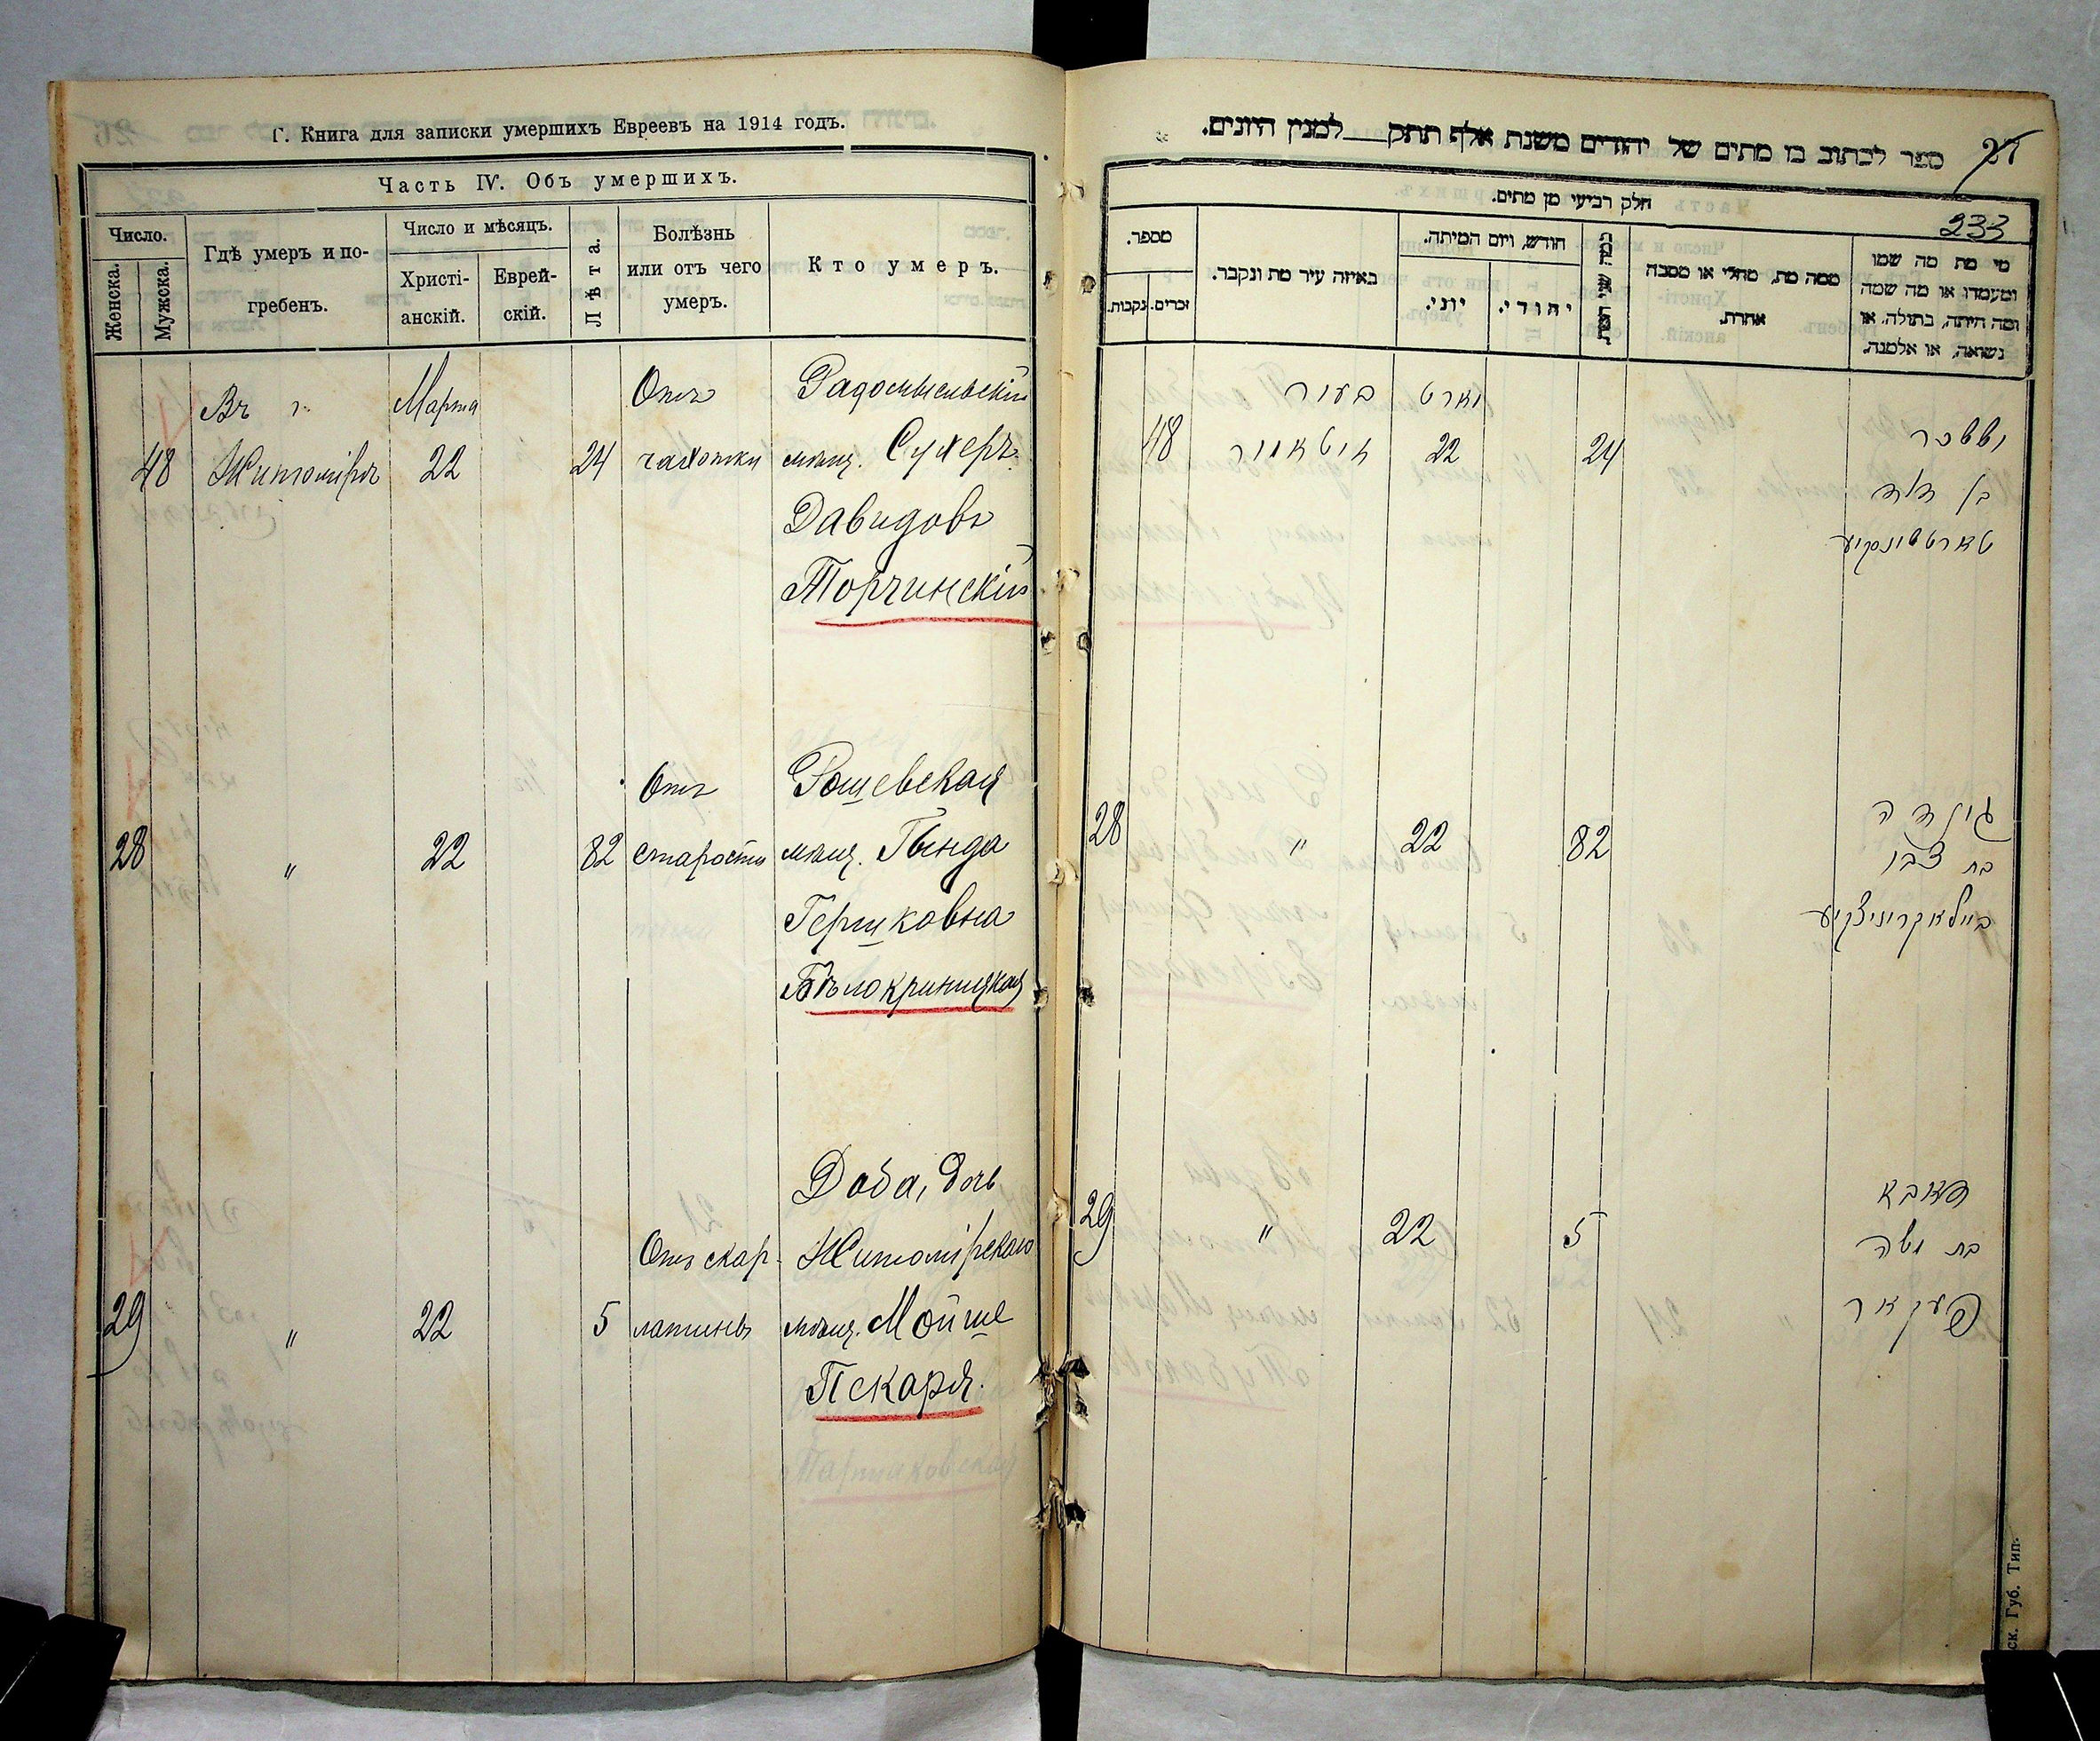 Г. Книга для записки умершихъ Евреевъ на 1914 годъ.
Часть IV. Объ умершихъ.
Число.
Женска.
Мужска.
Гдѣ умеръ и по-
гребенъ.
Число и мѣсяцъ.
Христі-
анскій.
Еврей-
скій.
Лѣта.
Болѣзнь
или отъ чего
умеръ.
Кто умеръ.
Въ г. Марта Отъ Радомысльскій
48 Житомірѣ 22 24 чахотки мѣщ. Сухеръ
Давидовъ
Торчинскій
Отъ Рашевская
28 " 22 82 старости мѣщ. Гында
Гершковна
Бѣлокриницкая
Доба, дочь
Отъ скар- Житомірскаго
29 " 22 5 латины мѣщ. Мойше
Пекаря.
ספר לכתוב בו מתים של יהודים משנת אלף תתק למנין היונים.
27
233
חלק רביעי מן מתים.
מספר.
נקבות.
זכרים.
באיזה עיר מת ונקבר.
חודש ויום המיתה.
יוני.
יהודי.
כמה שני
ממה מת, מחלי או מסבה
אחרת.
מי מת מה שמו
ומעמדו או מה שמה
ומה היתה, בתולה, או
נשואה, או אלמנה.
בעיר מארט
48 זיטאמיר 22 24 יששכר
בן דוד
טארטשינסקיע
28 " 22 82 גינדה
בת צבי
ביילאקריניצקיע
29 " 22 5 דאבא
בת משה
פעקאר
ск. Губ. Тип.